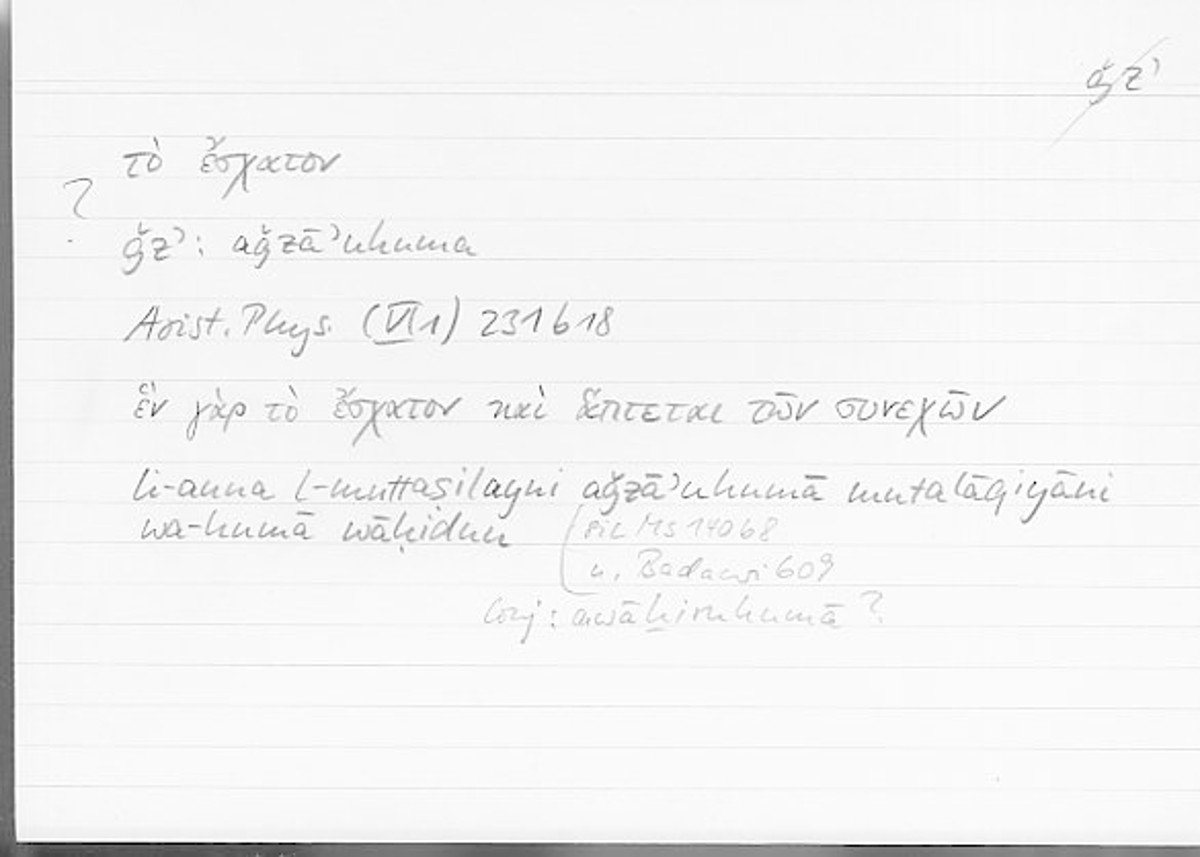 ǧzʾ
τὸ ἔσχατον
?
ǧzʾ: aǧzāʾuhuma
Arist. Phys. (VI 1) 231 b 18
ἓν γὰρ τὸ ἔσχατον καὶ ἅπτεται τῶν συνεχῶν
li-anna l-muttaṣilayni aǧzāʾuhumā mutalāqiyāni
wa-humā wāḥidun
(sic Ms 140 b 8
u. Badawi 609
Conj: awāḫiruhumā ?